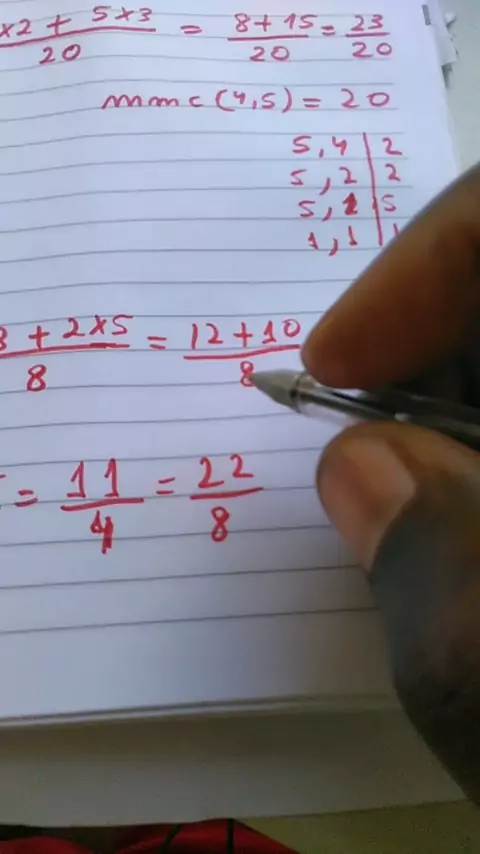 x2 + 5x3 / 20 = 8+15 / 20 = 23 / 20
mmc (4,5) = 20
5,4 | 2
5,2 | 2
5,1 | 5
1,1 | 1
3 + 2x5 / 8 = 12+10 / 8
= 11 / 4 = 22 / 8